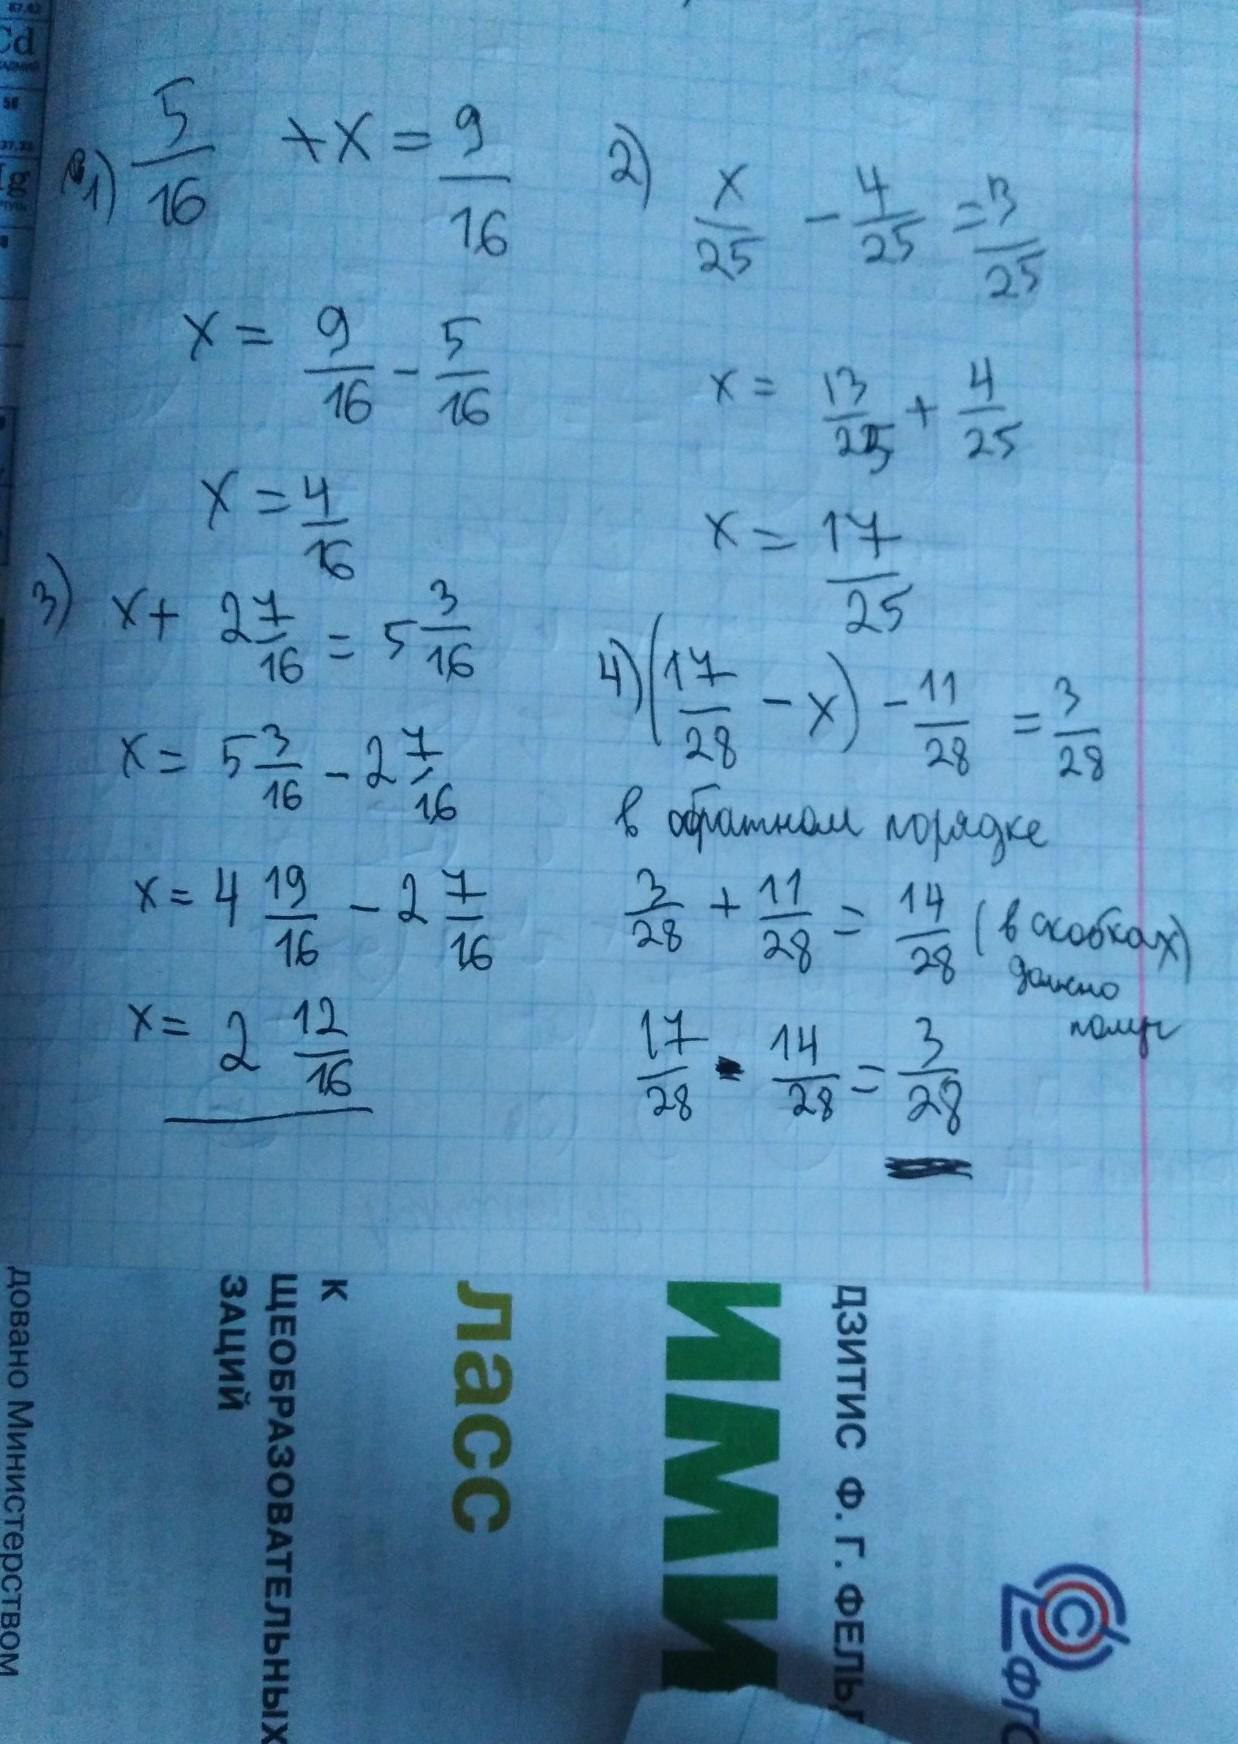 1) 5/16 + x = 9/16
x = 9/16 - 5/16
x = 4/16
2) x/25 - 4/25 = 3/25
x = 13/25 + 4/25
x = 17/25
3) x + 2 7/16 = 5 3/16
x = 5 3/16 - 2 7/16
x = 4 19/16 - 2 7/16
x = 2 12/16
4) (17/28 - x) - 11/28 = 3/28
в обратном порядке
3/28 + 11/28 = 14/28 (в скобках)
должно
получ
17/28 - 14/28 = 3/28
Cd
ДЗИТИС Ф. Г. ФЕЛЬ
ИМИ
ласс
К
ЩЕОБРАЗОВАТЕЛЬНЫХ
ЗАЦИЙ
довано Министерством
ФГО